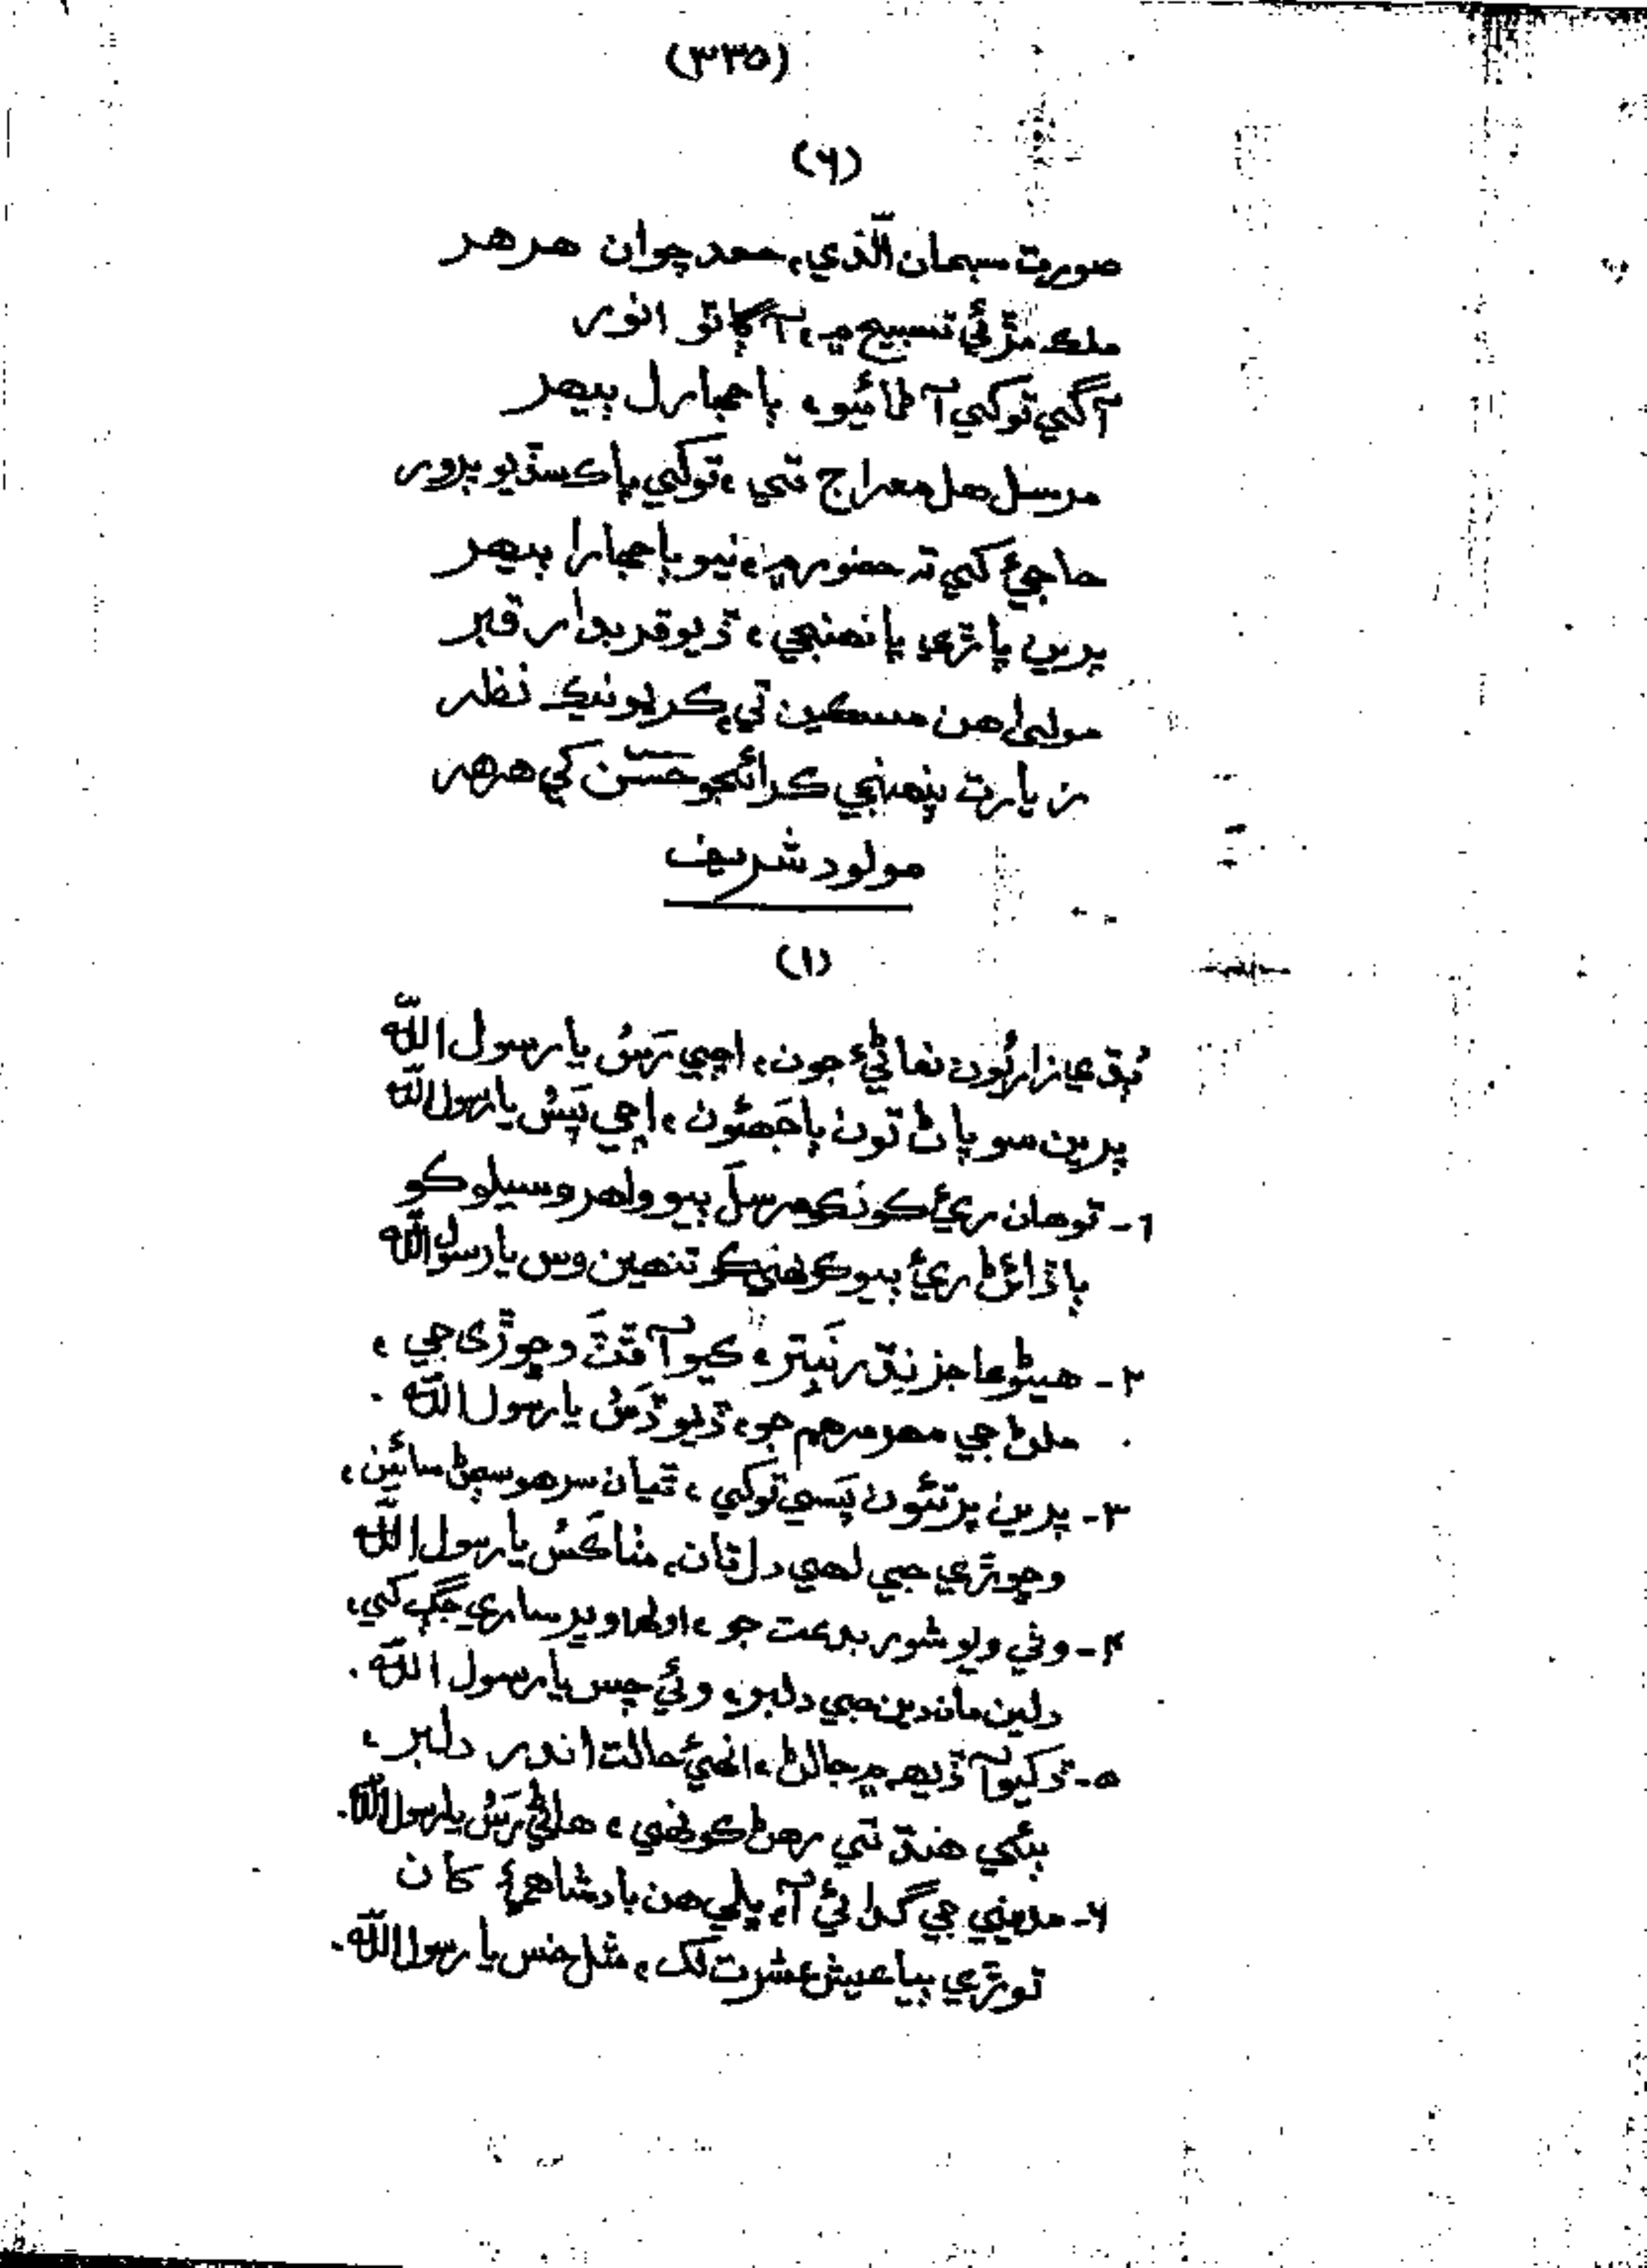 (٣٣٥)
(٦)
صورت سبحان الّذي، حمد چوان هر هر
ملڪ مڙئي تسبيح ۾، آ ڳاتو انور
آگي توکي آ ٺاهيو، ٻاجهارل ٻيهر
مرسل هل معراج تي، توکي پاڪ سڏيو پرور
حاجيءَ کي تہ حضور ۾، نيو ٻاجهارا ٻيهر
پرين پاڙي پانهنجي، ڏيو قريدار قبر
مولیٰ هن مسڪين تي ڪريو نيڪ نظر
زيارت پنهنجي ڪرائجو حسن کي هر هر
مولود شريف
(١)
ٻڌي زاريون نماڻيءَ جون، اچي رَسُ يا رسول اللّه
پرين سو پاڻ تون ٻاجهئون، اچي پَسُ يا رسول اللّه
١- توهان ريءَ ڪونڪو مرسل ٻيو واهر وسيلو ڪو
ٻاڏائڻ ريءَ ٻيو ڪونهي ڪو تنهين وس يا رسول اللّه
٢- هيڻو عاجز نڌر نٻيتر، ڪيو آ ڦٽَ وڇوڙي جي،
ملڻ جي مهر مرهم جو، ڏيو ڏَسُ يا رسول اللّه.
٣- پرين پرتئون پَسي توکي، ٿيان سرهو سڄڻ سائين،
وڇوڙي جي لهي دل تان، منا ڪَسُ يا رسول اللّه
٤- وڻي ويو شور بدعت جو، اولهه اوڀر ساري جڳ کي،
دلين مان دين جي دلبر، وئي چس يا رسول اللّه.
٥- ڏکيو آ ڏيهه ۾ جالڻ، انهيءَ حالت اندر دلبر،
ٻئي هنڌ تي رهڻ ڪونهي، هلائي رَسُ يا رسول اللّه.
٦- مديني جي گدائي آ، ڀلي هن بادشاهيءَ کان
توڙي ٻيا عيش عشرت لک، مثل خس يا رسول اللّه.